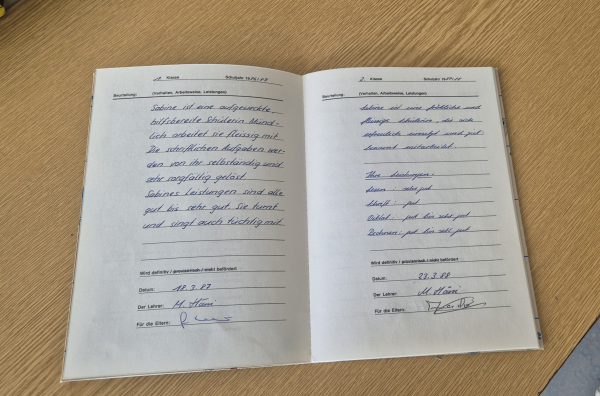 1. Klasse Schuljahr 1986/87
Beurteilung: (Verhalten, Arbeitsweise, Leistungen)
Sabine ist eine aufgeweckte,
hilfsbereite Schülerin. Münd-
lich arbeitet sie fleissig mit.
Die schriftlichen Aufgaben wer-
den von ihr selbständig und
sehr sorgfältig gelöst.
Sabines Leistungen sind alle
gut bis sehr gut. Sie turnt
und singt auch tüchtig mit.
Wird definitiv / provisorisch / nicht befördert
Datum: 18.3.87
Der Lehrer: M. Häni
Für die Eltern:
2. Klasse Schuljahr 1987/88
Beurteilung: (Verhalten, Arbeitsweise, Leistungen)
Sabine ist eine fröhliche und
fleissige Schülerin, die sich
erfreulich einsetzt und gut
mitarbeitet.
Ihre Leistungen:
Lesen: sehr gut
Schrift: gut
Diktat: gut bis sehr gut
Rechnen: gut bis sehr gut
Wird definitiv / provisorisch / nicht befördert
Datum: 22.3.88
Der Lehrer: M. Häni
Für die Eltern: